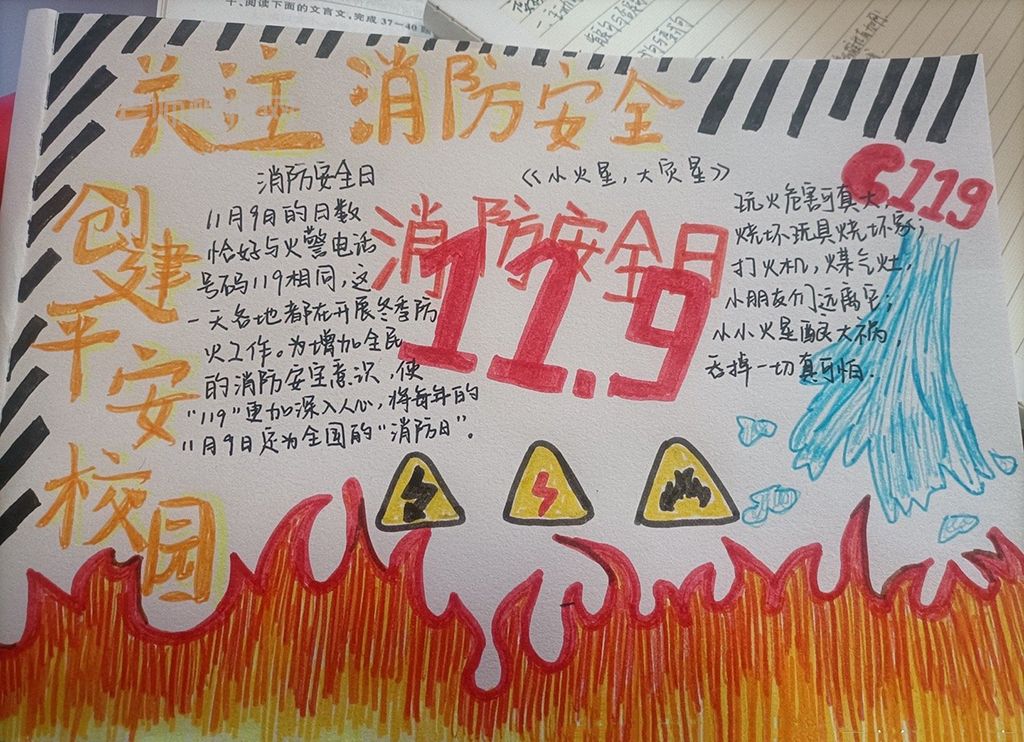 七、阅读下面的文言文，完成37—40题
关注 消防安全
创建
平安
校园
消防安全日
11月9日的日数
恰好与火警电话
号码119相同，这
一天各地都在开展冬季防
火工作。为增加全民
的消防安全意识，使
“119”更加深入人心，将每年的
11月9日定为全国的“消防日”。
消防安全日
11.9
《小火星，大灾星》
玩火危害可真大，
烧坏玩具烧坏家；
打火机，煤气灶，
小朋友们远离它；
小小火星酿大祸，
吞掉一切真可怕.
119